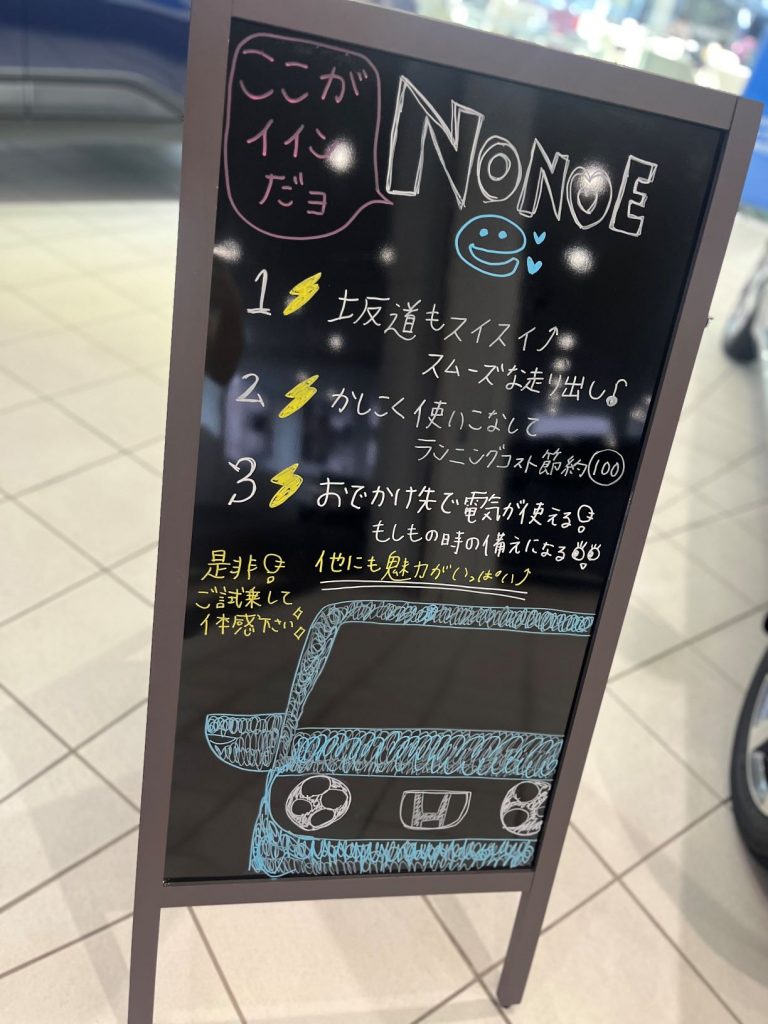 ここが
イイン
だヨ
NONOE
1 坂道もスイスイ↗
スムーズな走り出し♪
2 かしこく使いこなして
ランニングコスト節約100
3 おでかけ先で電気が使える!
もしもの時の備えになる!!
是非!
ご試乗して
体感下さい
他にも魅力がいっぱい↗
H